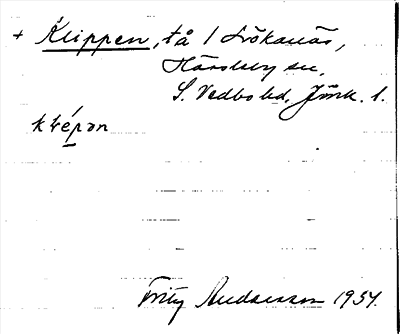 + Klippen, tå / Sjökanäs,
Hässleby sn,
S. Vedbo hd, Jönk. l.
klépən
Fritz Andersson 1937.